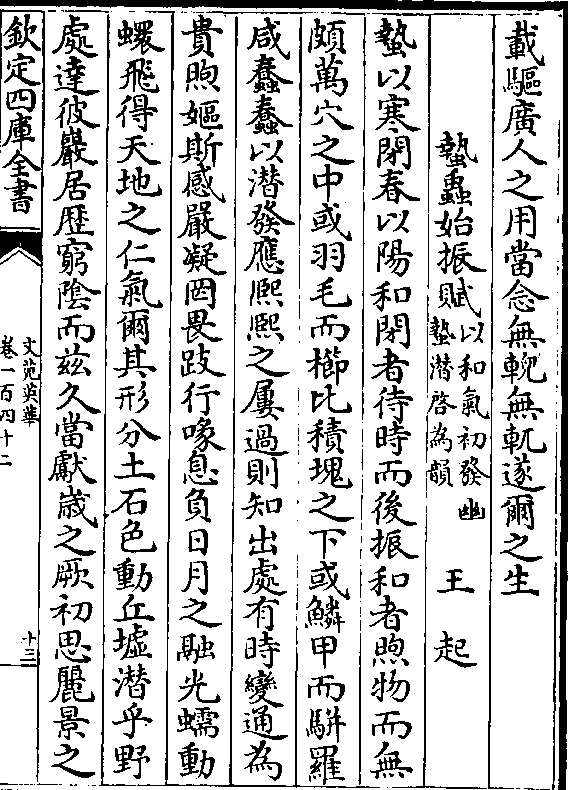 載驅廣人之用當念無輗無軏遂爾之生
蟄蟲始振賦以和氣初發幽
蟄潜啓為韻
王起
蟄以寒閉春以陽和閉者待時而後振和者煦物而無
頗萬穴之中或羽毛而櫛比積塊之下或鱗甲而駢羅
咸蠢蠢以潜發應熙熙之屢過則知出處有時變通為
貴煦嫗斯感嚴凝罔畏跂行喙息負日月之融光蠕動
蠉飛得天地之仁氣爾其形分土石色動丘墟潜乎野
處達彼巖居歴窮陰而兹久當獻歳之厥初思麗景之
欽定四庫全書
文苑英華
卷一百四十二
十三